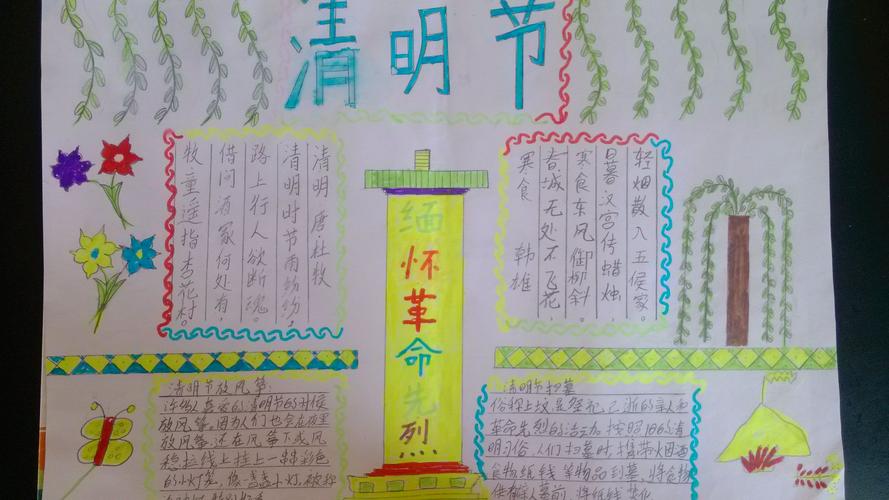 清明节
清明 唐·杜牧
清明时节雨纷纷，
路上行人欲断魂。
借问酒家何处有，
牧童遥指杏花村。
缅怀革命先烈
寒食 韩雄
春城无处不飞花
寒食东风御柳斜。
日暮汉宫传蜡烛，
轻烟散入五侯家。
清明节放风筝:
人喜爱的清明节的时候
放风筝。因为人们也会在夜里
放风筝，还在风筝下或风
稳拉线上挂上一串彩色
的小灯笼，像盏盏小灯，被称
清明节扫墓
俗称上坟是祭祀，已逝的亲人和
革命先烈的活动，按照旧的清
明习俗，人们扫墓时，携带
食物纸线等物品到墓，将食物